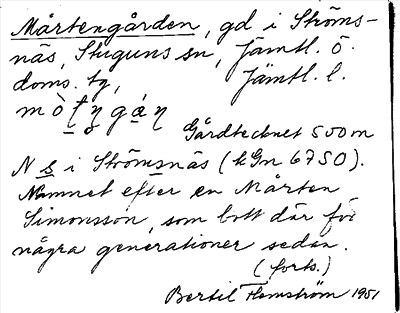 Mårtengården, gd i Ströms-
näs, Stuguns sn, Jämtl. ö.
doms. tg, Jämtl. l.
mò̱ʈn̥gá̱ɳ
Gårdtecknet 500 m
N s i Strömsnäs (kGn 6750).
Namnet efter en Mårten
Simonsson, som bott där för
några generationer sedan.
(forts.)
Bertil Flemström 1951